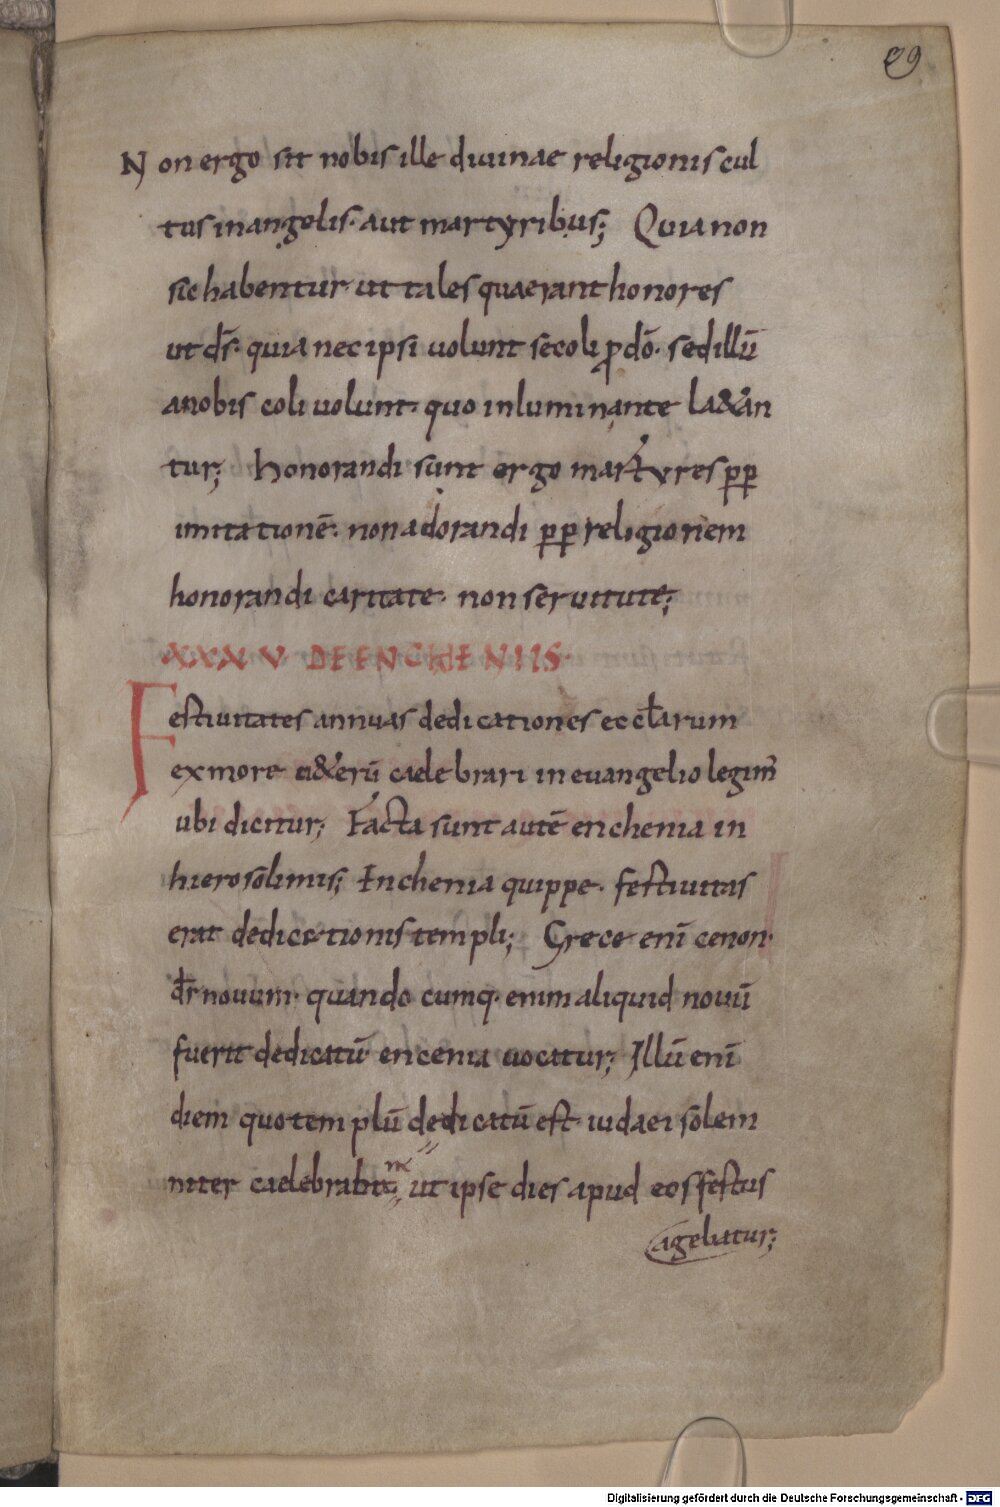 39
Non ergo sit nobis ille diuinae religionis cul
tus in angelis· aut martyribus; Quia non
sic habentur ut tales quaerant honores
ut ds̄· quia nec ipsi uolunt se coli p̱ dō· sed illū
a nobis coli uolunt· quo inluminante la&an
tur; Honorandi sunt ergo martyres p̱p̱
imitationē· non adorandi p̱p̱ religionem
honorandi caritate· non seruitute;
XXXV DE ENCHENIIS·
Festiuitates annuas dedicationes eccl̄arum
ex more u&erū caelebrari in euangelio legim̄
ubi dicitur; Facta sunt autē enchenia in
hierosolimis; Enchenia quippe· festiuitas
erat dedicationis templi; Grece enī cenon·
dr̄ nouum· quando cumq· enim aliquid nouū
fuerit dedicatū encenia uocatur; Illū enī
diem quo templū dedicatū est· iudaei solem
niter caelebrabant; ut ipse dies apud eos festus
agebatur;
Digitalisierung gefördert durch die Deutsche Forschungsgemeinschaft - DFG